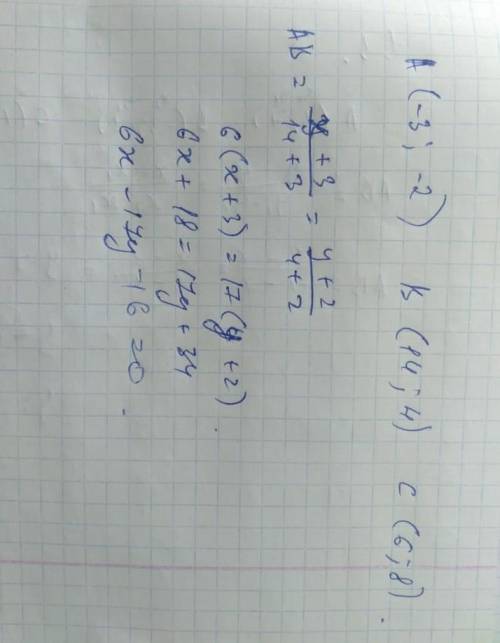 A (-3; -2) B (14; 4) C (6; 8).
AB = x + 3 / 14 + 3 = y + 2 / 4 + 2
6(x + 3) = 17(y + 2).
6x + 18 = 17y + 34
6x - 17y - 16 = 0.